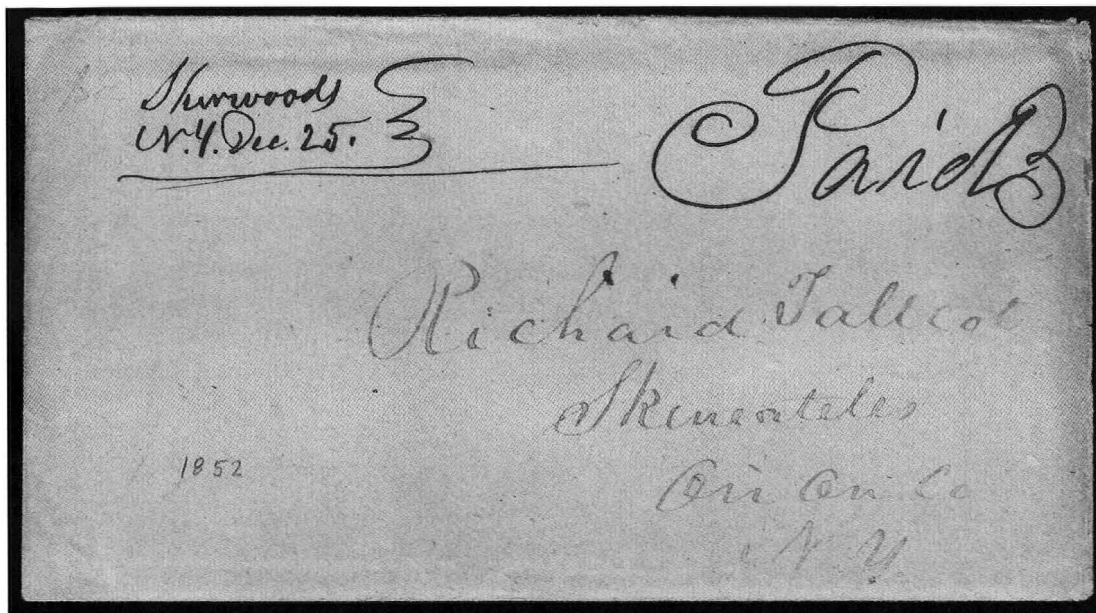 Sherwoods
N.Y. Dec. 25.
Paid 3
Richard Tallcot
Skeneateles
On On Co
N.Y.
1852